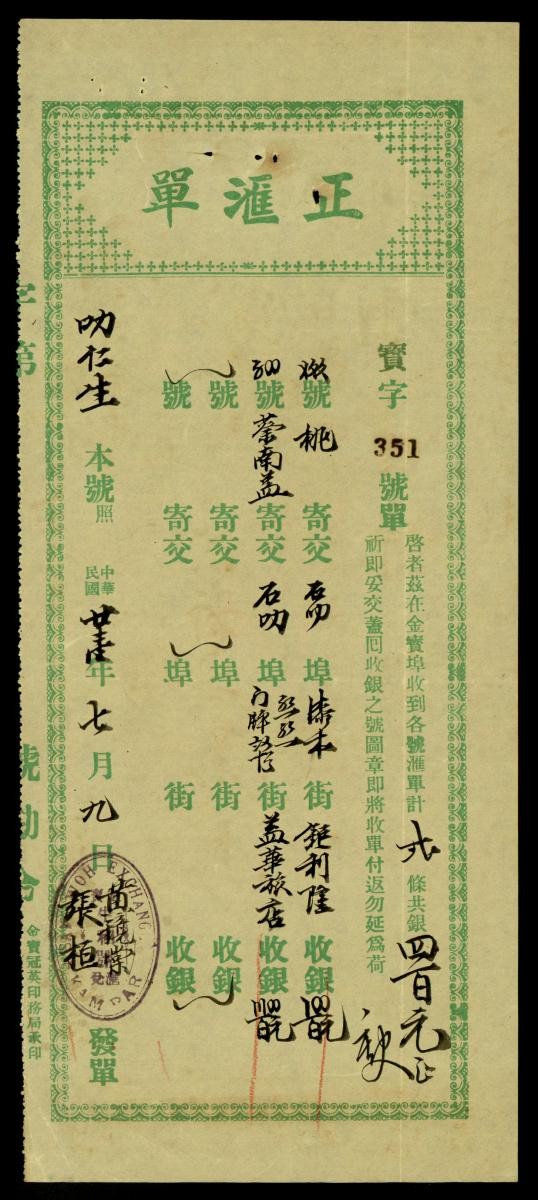 正滙單
寳字
351
號單
啓者茲在金寳埠收到各號滙單計 弍 條共銀 四百元正
祈即妥交蓋囘收銀之號圖章即將收單付返勿延爲荷
號 桃 寄交 石叻 埠 漆木 街 鉅利隆 收銀
號 榮南益 寄交 石叻 埠 街 益華旅店 收銀
號 寄交 埠 街 收銀
號 寄交 埠 街 收銀
叻仁生 本號照 中華民國 年 七 月 九 日 發單
張桓
EXCHANG
KAMPAR
字第
號
金寳冠英印務局承印